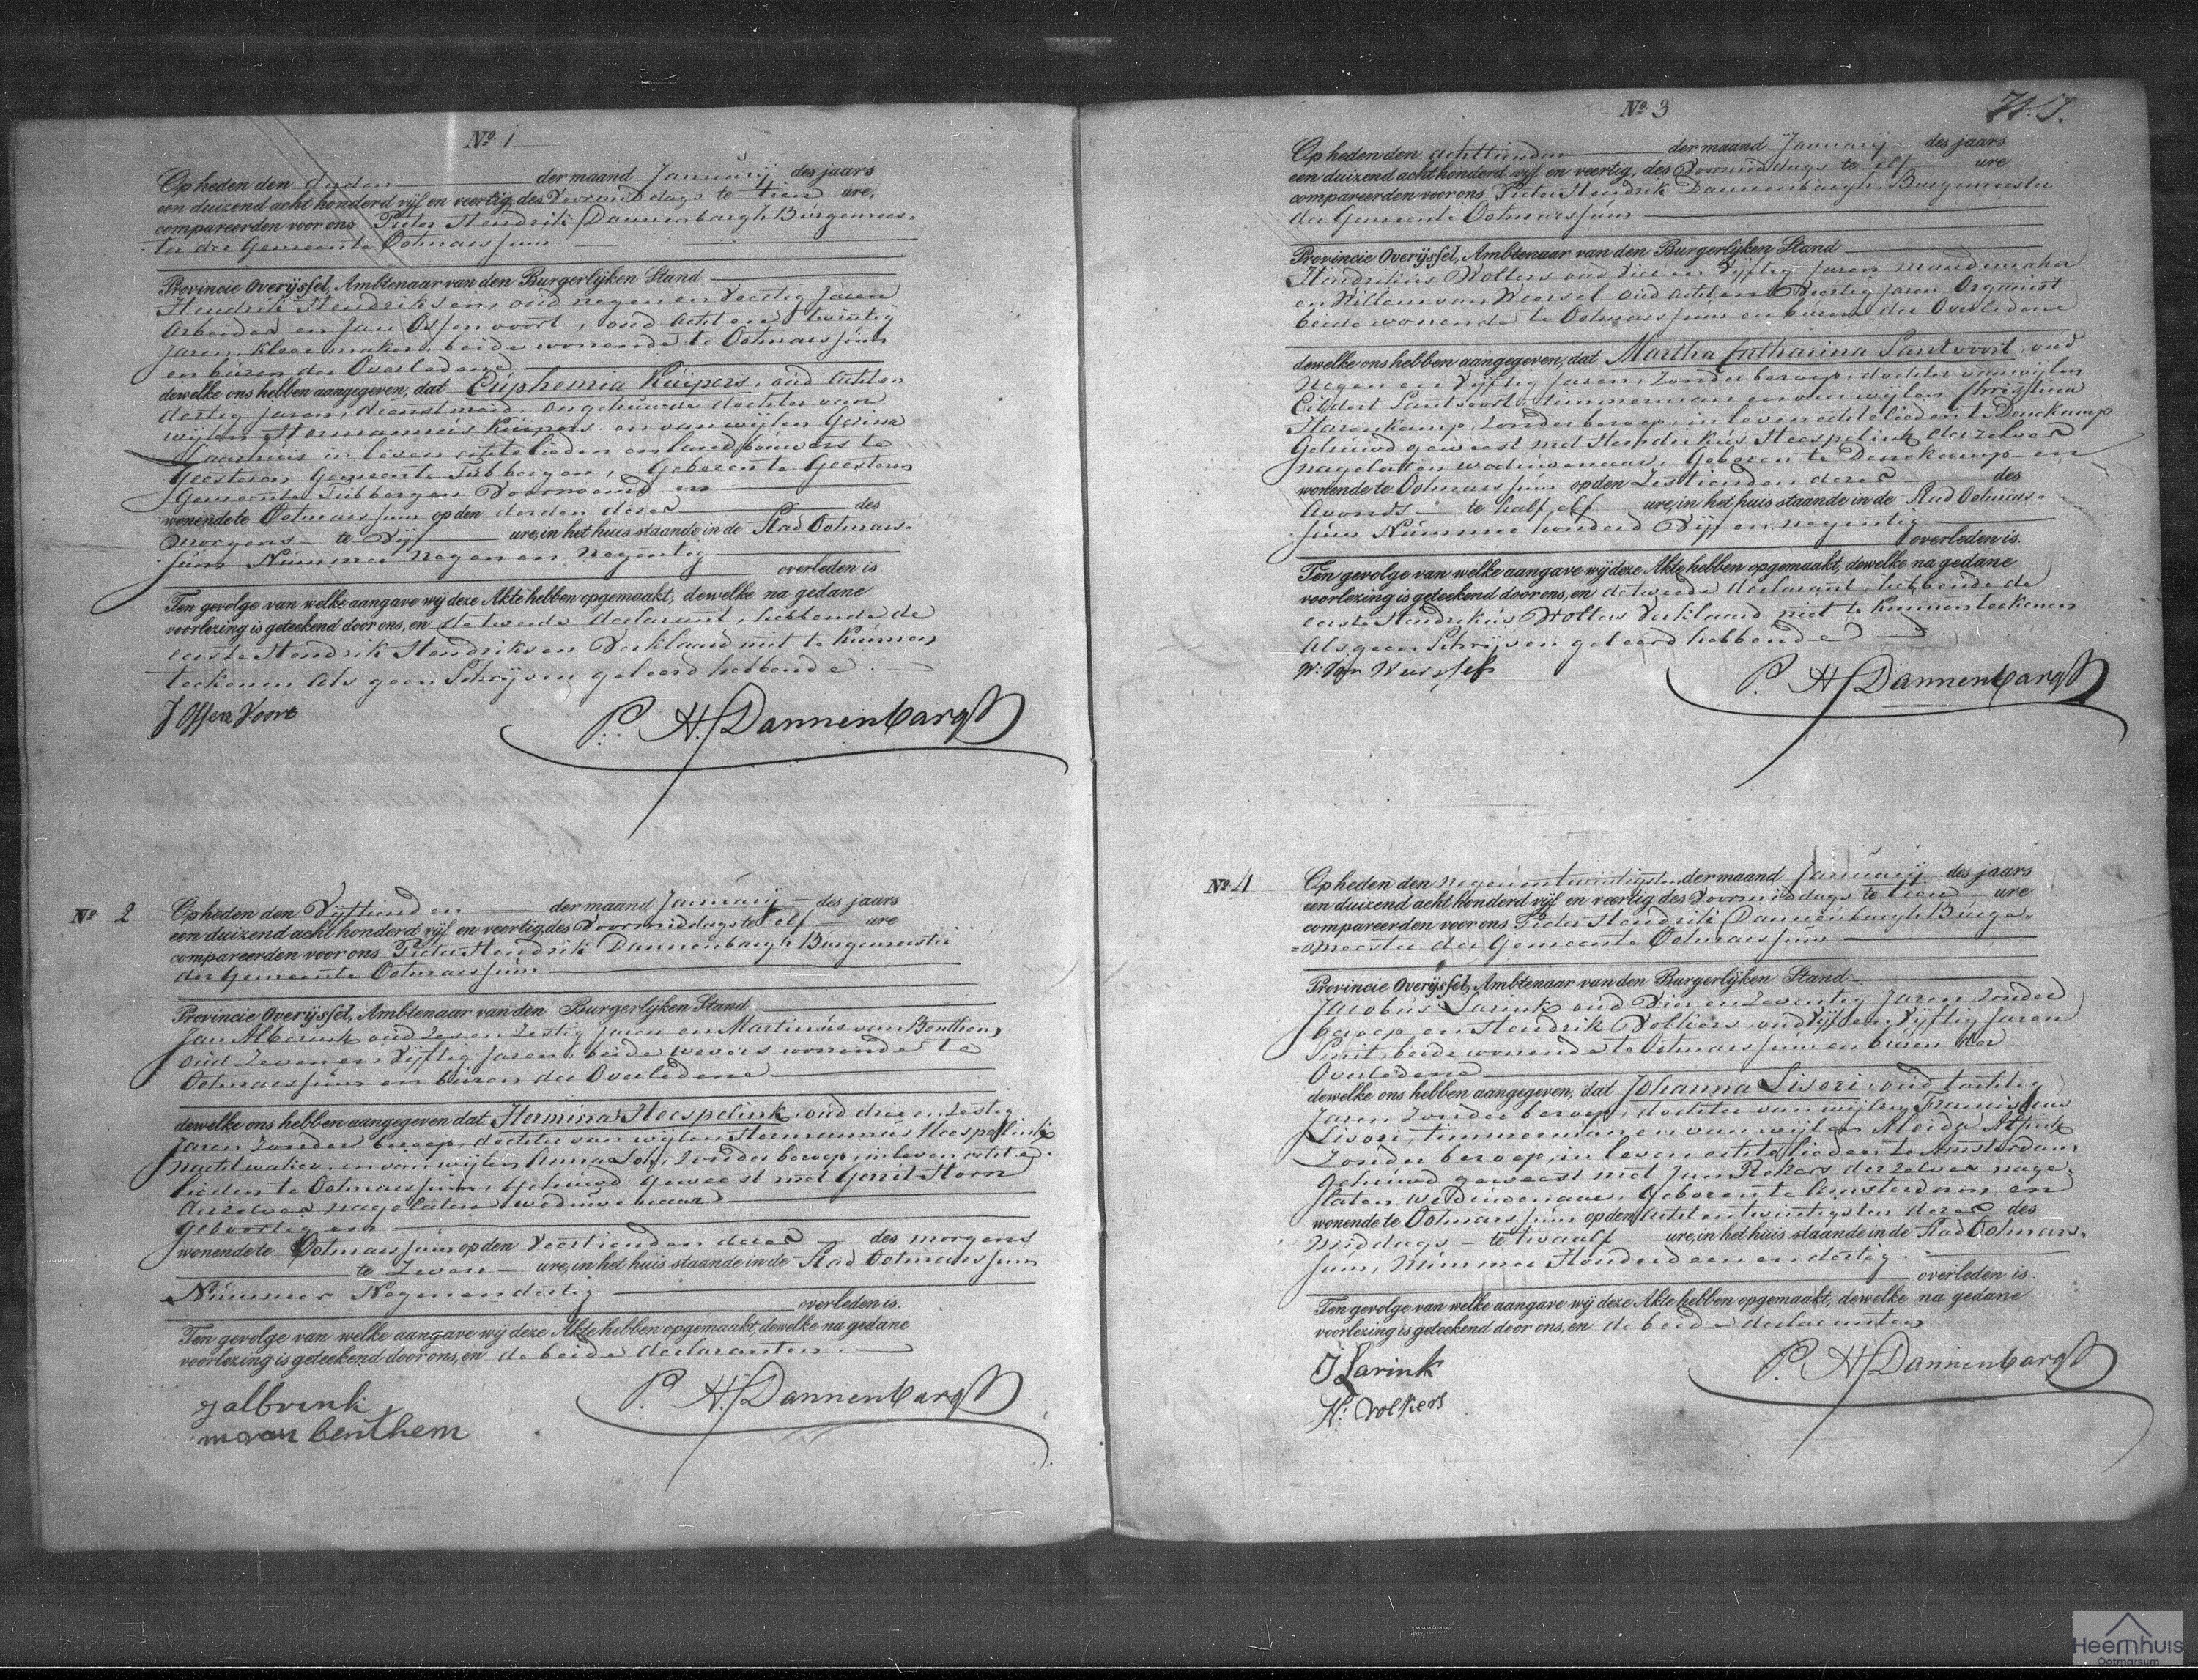 Nº 1
Op heden den derden der maand Januarij des jaars
een duizend acht honderd vijf en veertig, des Voormiddags te tien ure,
compareerden voor ons Pieter Hendrik Dannenbargh Burgemees-
ter der Gemeente Ootmarssum
Provincie Overijssel, Ambtenaar van den Burgerlijken Stand
Hendrik Hendriksen, oud negen en Veertig Jaren
Arbeider en Jan Ossenvoort, oud acht en twintig
Jaren, kleermaker, beide wonende te Ootmarssum
en buren der Overledene
dewelke ons hebben aangegeven, dat Euphemia Kuipers, oud acht en
dertig Jaren, dienstmeid, ongehuwde dochter van
wijlen Hermannus Kuipers en van wijlen Gesina
in leven echtelieden en landbouwers te
Geesteren Gemeente Tubbergen, Geboren te Geesteren
Gemeente Tubbergen Voornoemd en
wonende te Ootmarssum op den derden dezer des
morgens te Vijf ure, in het huis staande in de Stad Ootmars-
sum Nummer Negen en Negentig
overleden is.
Ten gevolge van welke aangave wij deze Akte hebben opgemaakt, dewelke na gedane
voorlezing is geteekend door ons, en de tweede declarant, hebbende de
eerste Hendrik Hendriksen Verklaard niet te kunnen
teekenen als geen Schrijven geleerd hebbende
J Ossen Voort
P. H. Dannenbargh
Nº 2
Op heden den Vijftienden der maand Januarij des jaars
een duizend acht honderd vijf en veertig des Voormiddags te elf ure
compareerden voor ons Pieter Hendrik Dannenbargh Burgemeester
der Gemeente Ootmarssum
Provincie Overijssel, Ambtenaar van den Burgerlijken Stand
Jan Alberink oud Zes en Zestig Jaren en Martinus van Benthem,
oud Zeven en Vijftig Jaren, beide wevers wonende te
Ootmarssum en buren der Overledene
dewelke ons hebben aangegeven dat Hermina Heespelink, oud drie en Zestig
Jaren Zonder beroep, dochter van wijlen Hermannus Heespelink
nachtwaker en van wijlen Anna Zonder beroep, in leven echte-
lieden te Ootmarssum, Gehuwd geweest met Gerrit Horn
derzelver nagelaten weduwenaar
Geboortig en
wonende te Ootmarssum op den Veertienden dezer des morgens
te Zeven ure, in het huis staande in de Stad Ootmarssum
Nummer Negenendertig
overleden is.
Ten gevolge van welke aangave wij deze Akte hebben opgemaakt, dewelke na gedane
voorlezing is geteekend door ons, en de beide declaranten.
J albrink
m van benthem
P. H. Dannenbargh
Nº 3
Op heden den achttienden der maand Januarij des jaars
een duizend acht honderd vijf en veertig, des Voormiddags te elf ure
compareerden voor ons Pieter Hendrik Dannenbargh Burgemeester
der Gemeente Ootmarssum
Provincie Overijssel, Ambtenaar van den Burgerlijken Stand
Hendrikus Wolters oud Vier en Vijftig Jaren Mandemaker
en Willem van Weersel oud acht en Veertig Jaren Organist
beide wonende te Ootmarssum en buren der Overledene
dewelke ons hebben aangegeven, dat Martha Catharina Santvoort, oud
Negen en Vijftig Jaren, Zonder beroep, dochter van wijlen
Santvoort timmerman en van wijlen Christina
Harenkamp, Zonder beroep, in leven echtelieden te Denekamp
Gehuwd geweest met Hendrikus Heespelink derzelver
nagelaten weduwenaar, Geboren te Denekamp en
wonende te Ootmarssum op den Zestienden dezer des
Avonds te half elf ure, in het huis staande in de Stad Ootmars-
sum Nummer honderd Vijf en negentig
overleden is.
Ten gevolge van welke aangave wij deze Akte hebben opgemaakt, dewelke na gedane
voorlezing is geteekend door ons, en de tweede declarant, hebbende de
eerste Hendrikus Wolters Verklaard niet te kunnen teekenen
Als geen Schrijven geleerd hebbende
W: Van Weersel
P. H. Dannenbargh
Nº 4
Op heden den negenentwintigsten der maand Januarij des jaars
een duizend acht honderd vijf en veertig des Voormiddags te tien ure
compareerden voor ons Pieter Hendrik Dannenbargh Burge-
meester der Gemeente Ootmarssum
Provincie Overijssel, Ambtenaar van den Burgerlijken Stand
Jacobus Larink oud Vier en Zeventig Jaren Zonder
beroep en Hendrik Volkers, oud Vijf en Vijftig Jaren
Smit, beide wonende te Ootmarssum en buren der
Overledene
dewelke ons hebben aangegeven, dat Johanna Lisori, oud tachtig
Jaren Zonder beroep, dochter van wijlen Franciscus
Lisori, timmerman en van wijlen Aleida
Zonder beroep, in leven echtelieden te Amsterdam
Gehuwd geweest met Jan Rekers derzelver nage-
laten weduwenaar, Geboren te Amsterdam en
wonende te Ootmarssum op den Acht entwintigsten dezer des
Middags te twaalf ure, in het huis staande in de Stad Ootmars-
sum, Nummer Honderd een en dertig
overleden is.
Ten gevolge van welke aangave wij deze Akte hebben opgemaakt, dewelke na gedane
voorlezing is geteekend door ons, en de beide declaranten
J Larink
H: Volkers
P. H. Dannenbargh
Heemhuis
Ootmarsum